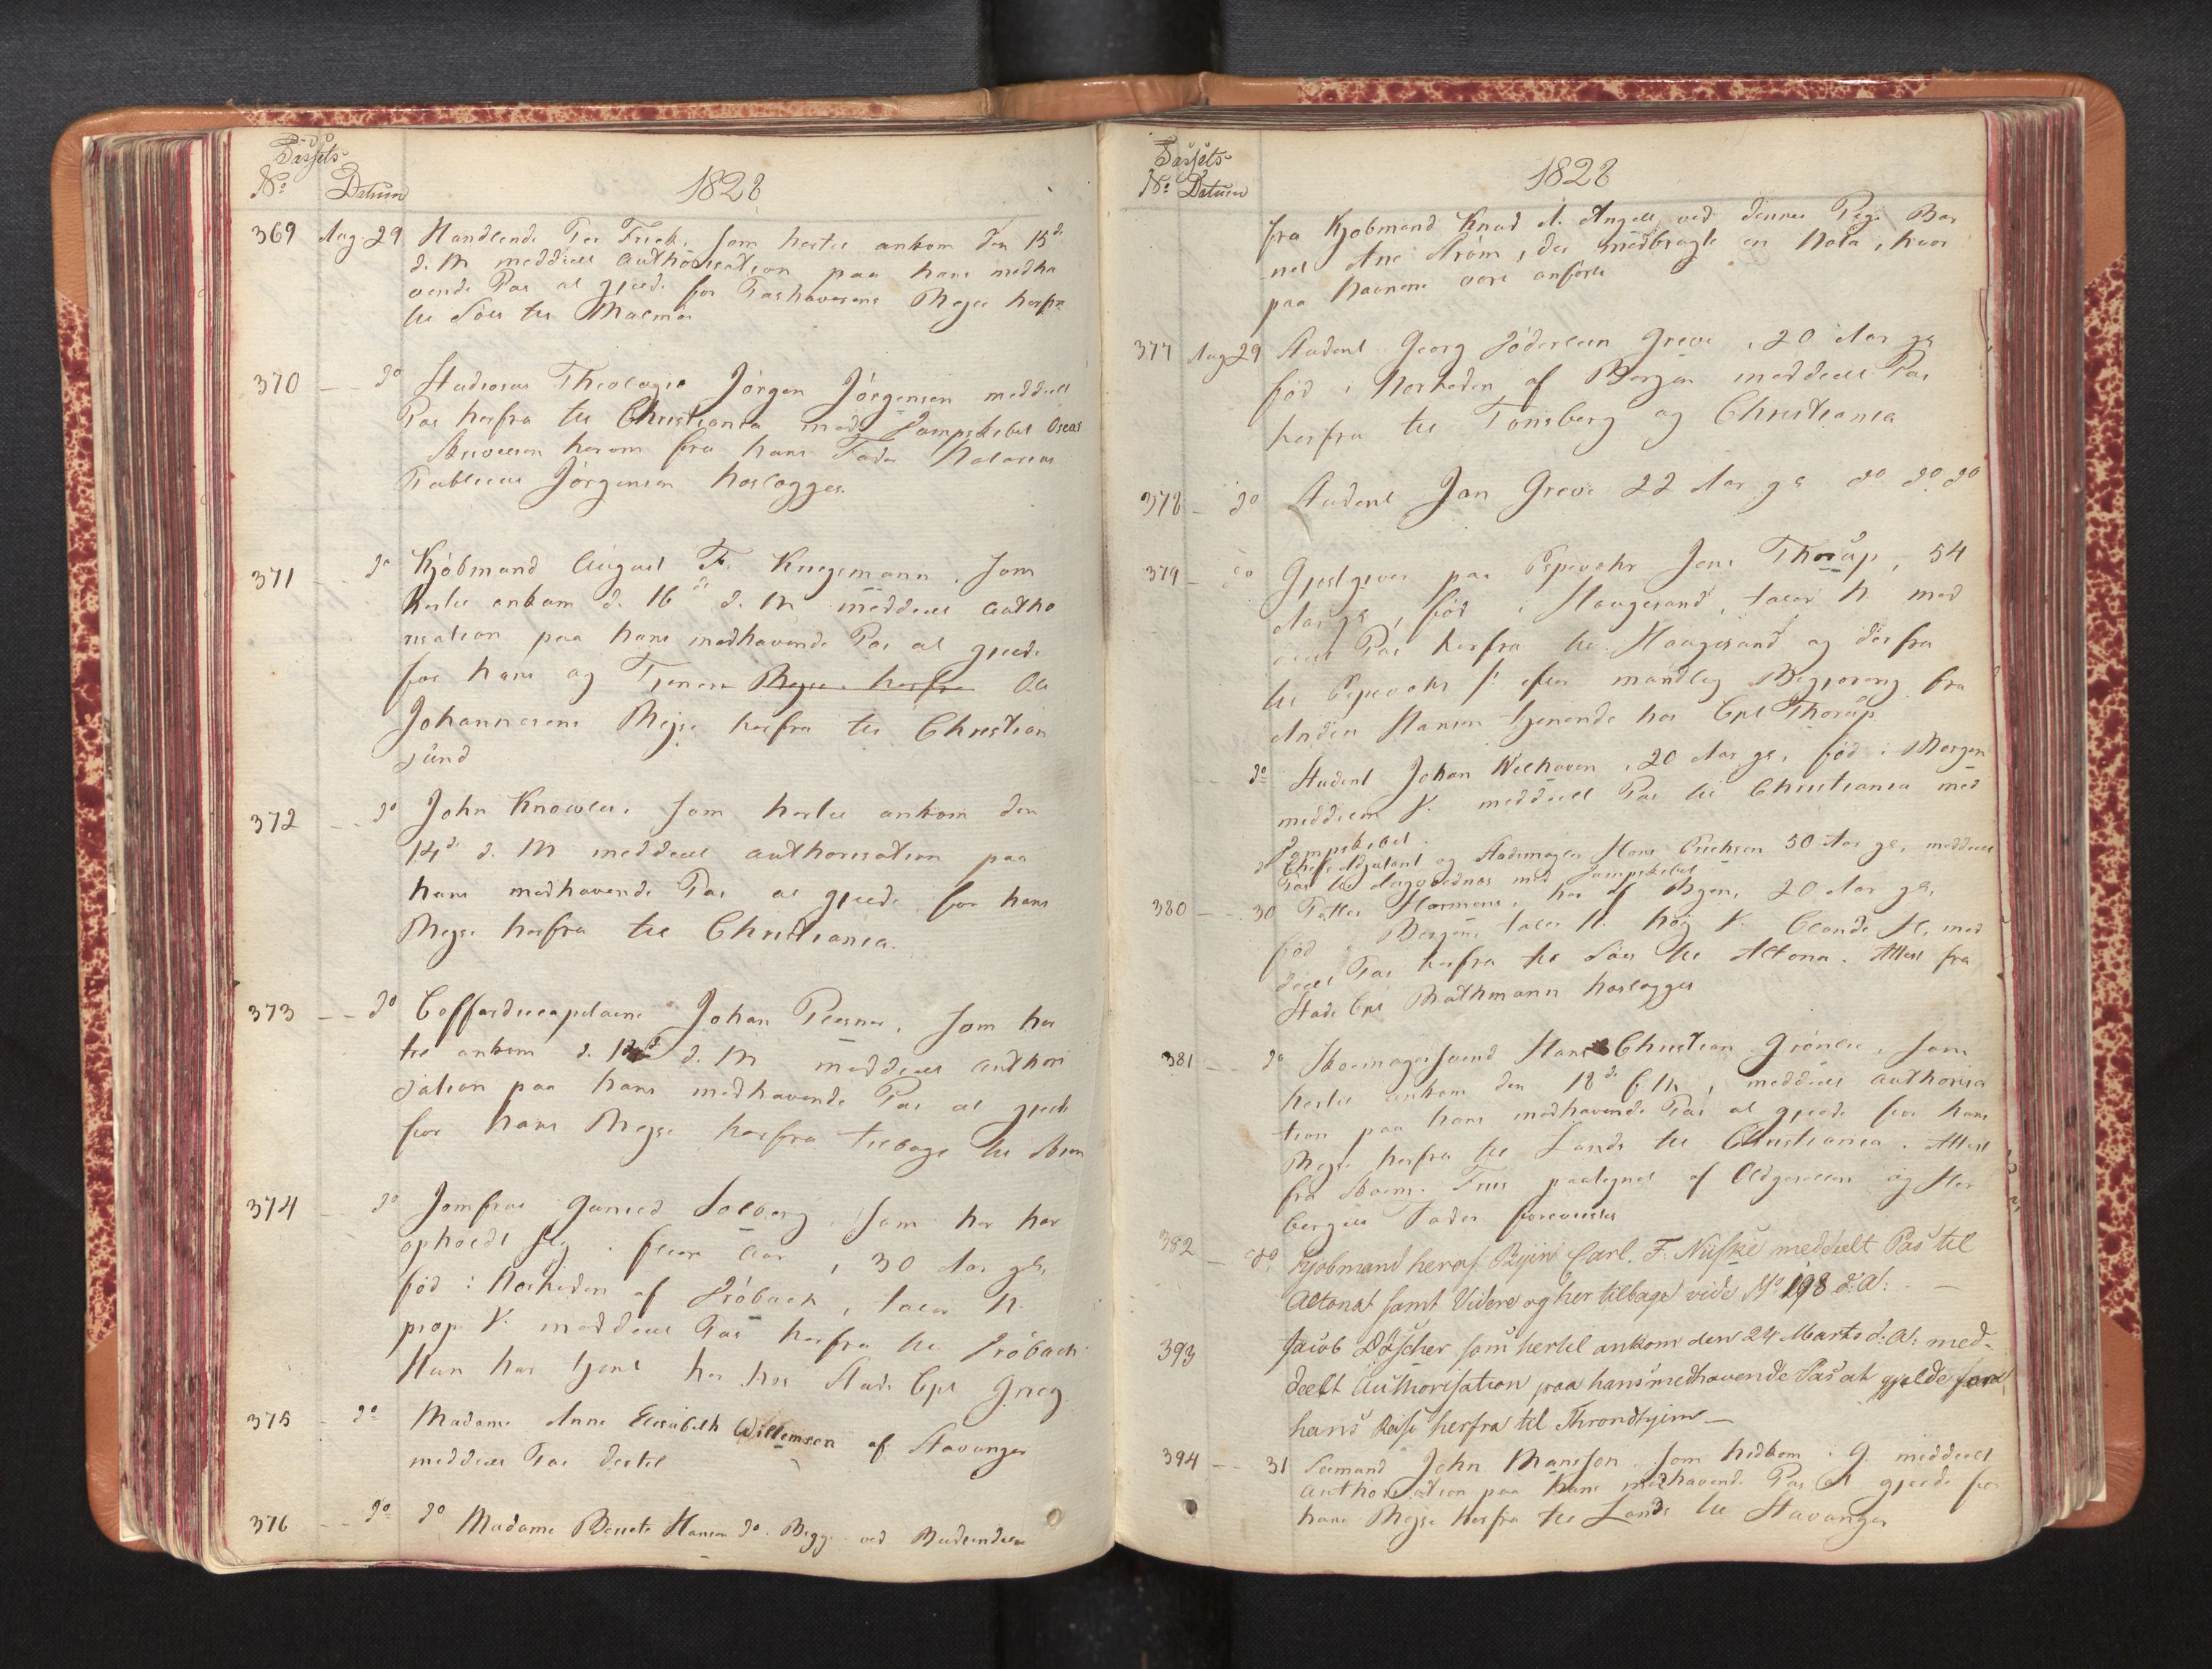 Passets
No Datum
1828
369 Aug 29 Handlende Per Frick, som hertil ankom den 15de
d. M. meddeelt authorisation paa hans medha
vende Pas at gjælde for Pashaverens Rejse herfra
til Söes til Malmöe
370 - - do Studiosus Theologie Jörgen Jörgensen meddeelt
Pas herfra til Christiania med Dampskibet Oscar
Skrivelsen herom fra hans Fader Notarius
Publicus Jörgensen hoslægges.
371 - - do Kjöbmand August F. Krugmann, som
hertil ankom d. 16de d. M. meddeelt autho
risation paa hans medhavende Pas at gjælde
for hans og Tjeners Rejse herfra Ole
Johannesens Rejse herfra til Christian
sund
372 - - do John Knowles, som hertil ankom den
14de d. M. meddeelt authorisation paa
hans medhavende Pas at gjælde for hans
Rejse herfra til Christiania.
373 - - do Coffardiecapitaine Johan som her
til ankom d. d. M. meddeelt authori
sation paa hans medhavende Pas at gjælde
for hans Rejse herfra tilbage til
374 - do Jomfrue Gunild Solberg, som her har
opholdt sig i fleere Aar, 30 Aar gl,
föd i Nærheden af Dröback, taler N.
prop. V. meddeelt Pas herfra til Dröback
Hun har tjent her hos Stads Cpt Grieg
375 - do Madame Anne Elisabeth Willemsen af Stavanger
meddeelt Pas dertil
376 - - do do Madame Berete Hansen do. Begge ved Budsendelse
Passets
No Datum
1828
fra Kjöbmand Knud A. Angell, ved dennes Pige Bar
net Ane Ström, der medbragte en Nota, hvor
paa Navnene vare anförte
377 Aug 29 Student Georg Döderlein Greve, 20 Aar gl
föd i Nærheden af Bergen meddeelt Pas
herfra til Tönsberg og Christiania
378 - do Student Jan Greve 22 Aar gl do do do
379 - do Gjestgiver paa Espevær Jens Thorup, 54
Aar gl, föd i Haugesund, taler N. med
deelt Pas herfra til Haugesund og derfra
til Espevær efter mundtlig Begjæring fra
Anden Hansen tjenende hos Cpt Thorup
- - do Student Johan Welhaven, 20 Aar gl, föd i Bergen
middels V. meddeelt Pas til Christiania med
Dampskibet.
do Chefs Adjutant og Stadsmajor Hans Erichsen 50 Aar gl, meddeelt
Pas til med Dampskibet
380 - - 30 Petter Harmens, her af Byen, 20 Aar gl,
föd i Bergen, taler N. höj V. blonde H. med
deelt Pas herfra til Söes til Altona. Attest fra
Stads Cpt Rathmann hoslægges
381 - - do Skomagersvend Hans Christian Grönlie, som
hertil ankom den 18de f. M., meddeelt authorisa
tion paa hans medhavende Pas at gjælde for hans
Rejse herfra til Lands til Christiania. Attest
fra Skom. Friis paategnet af Oldgesellen og Her
bergets Fader foreviistes
382 - do Kjøbmand heraf Byen Carl. F. Niiske meddeelt Pas til
Altona samt Videre og her tilbage vide No 198 d: A: —
393 Jacob Döscher som hertil ankom den 24 Marts d: A: med-
deelt Authorisation paa hans medhavende Pas at gjelde for
hans Reise herfra til Throndhjem —
394 - - 31 Sömand John Mansson, som hidkom i G. meddeelt
authorisation paa hans medhavende Pas at gjælde for
hans Rejse herfra til Lands til Stavanger